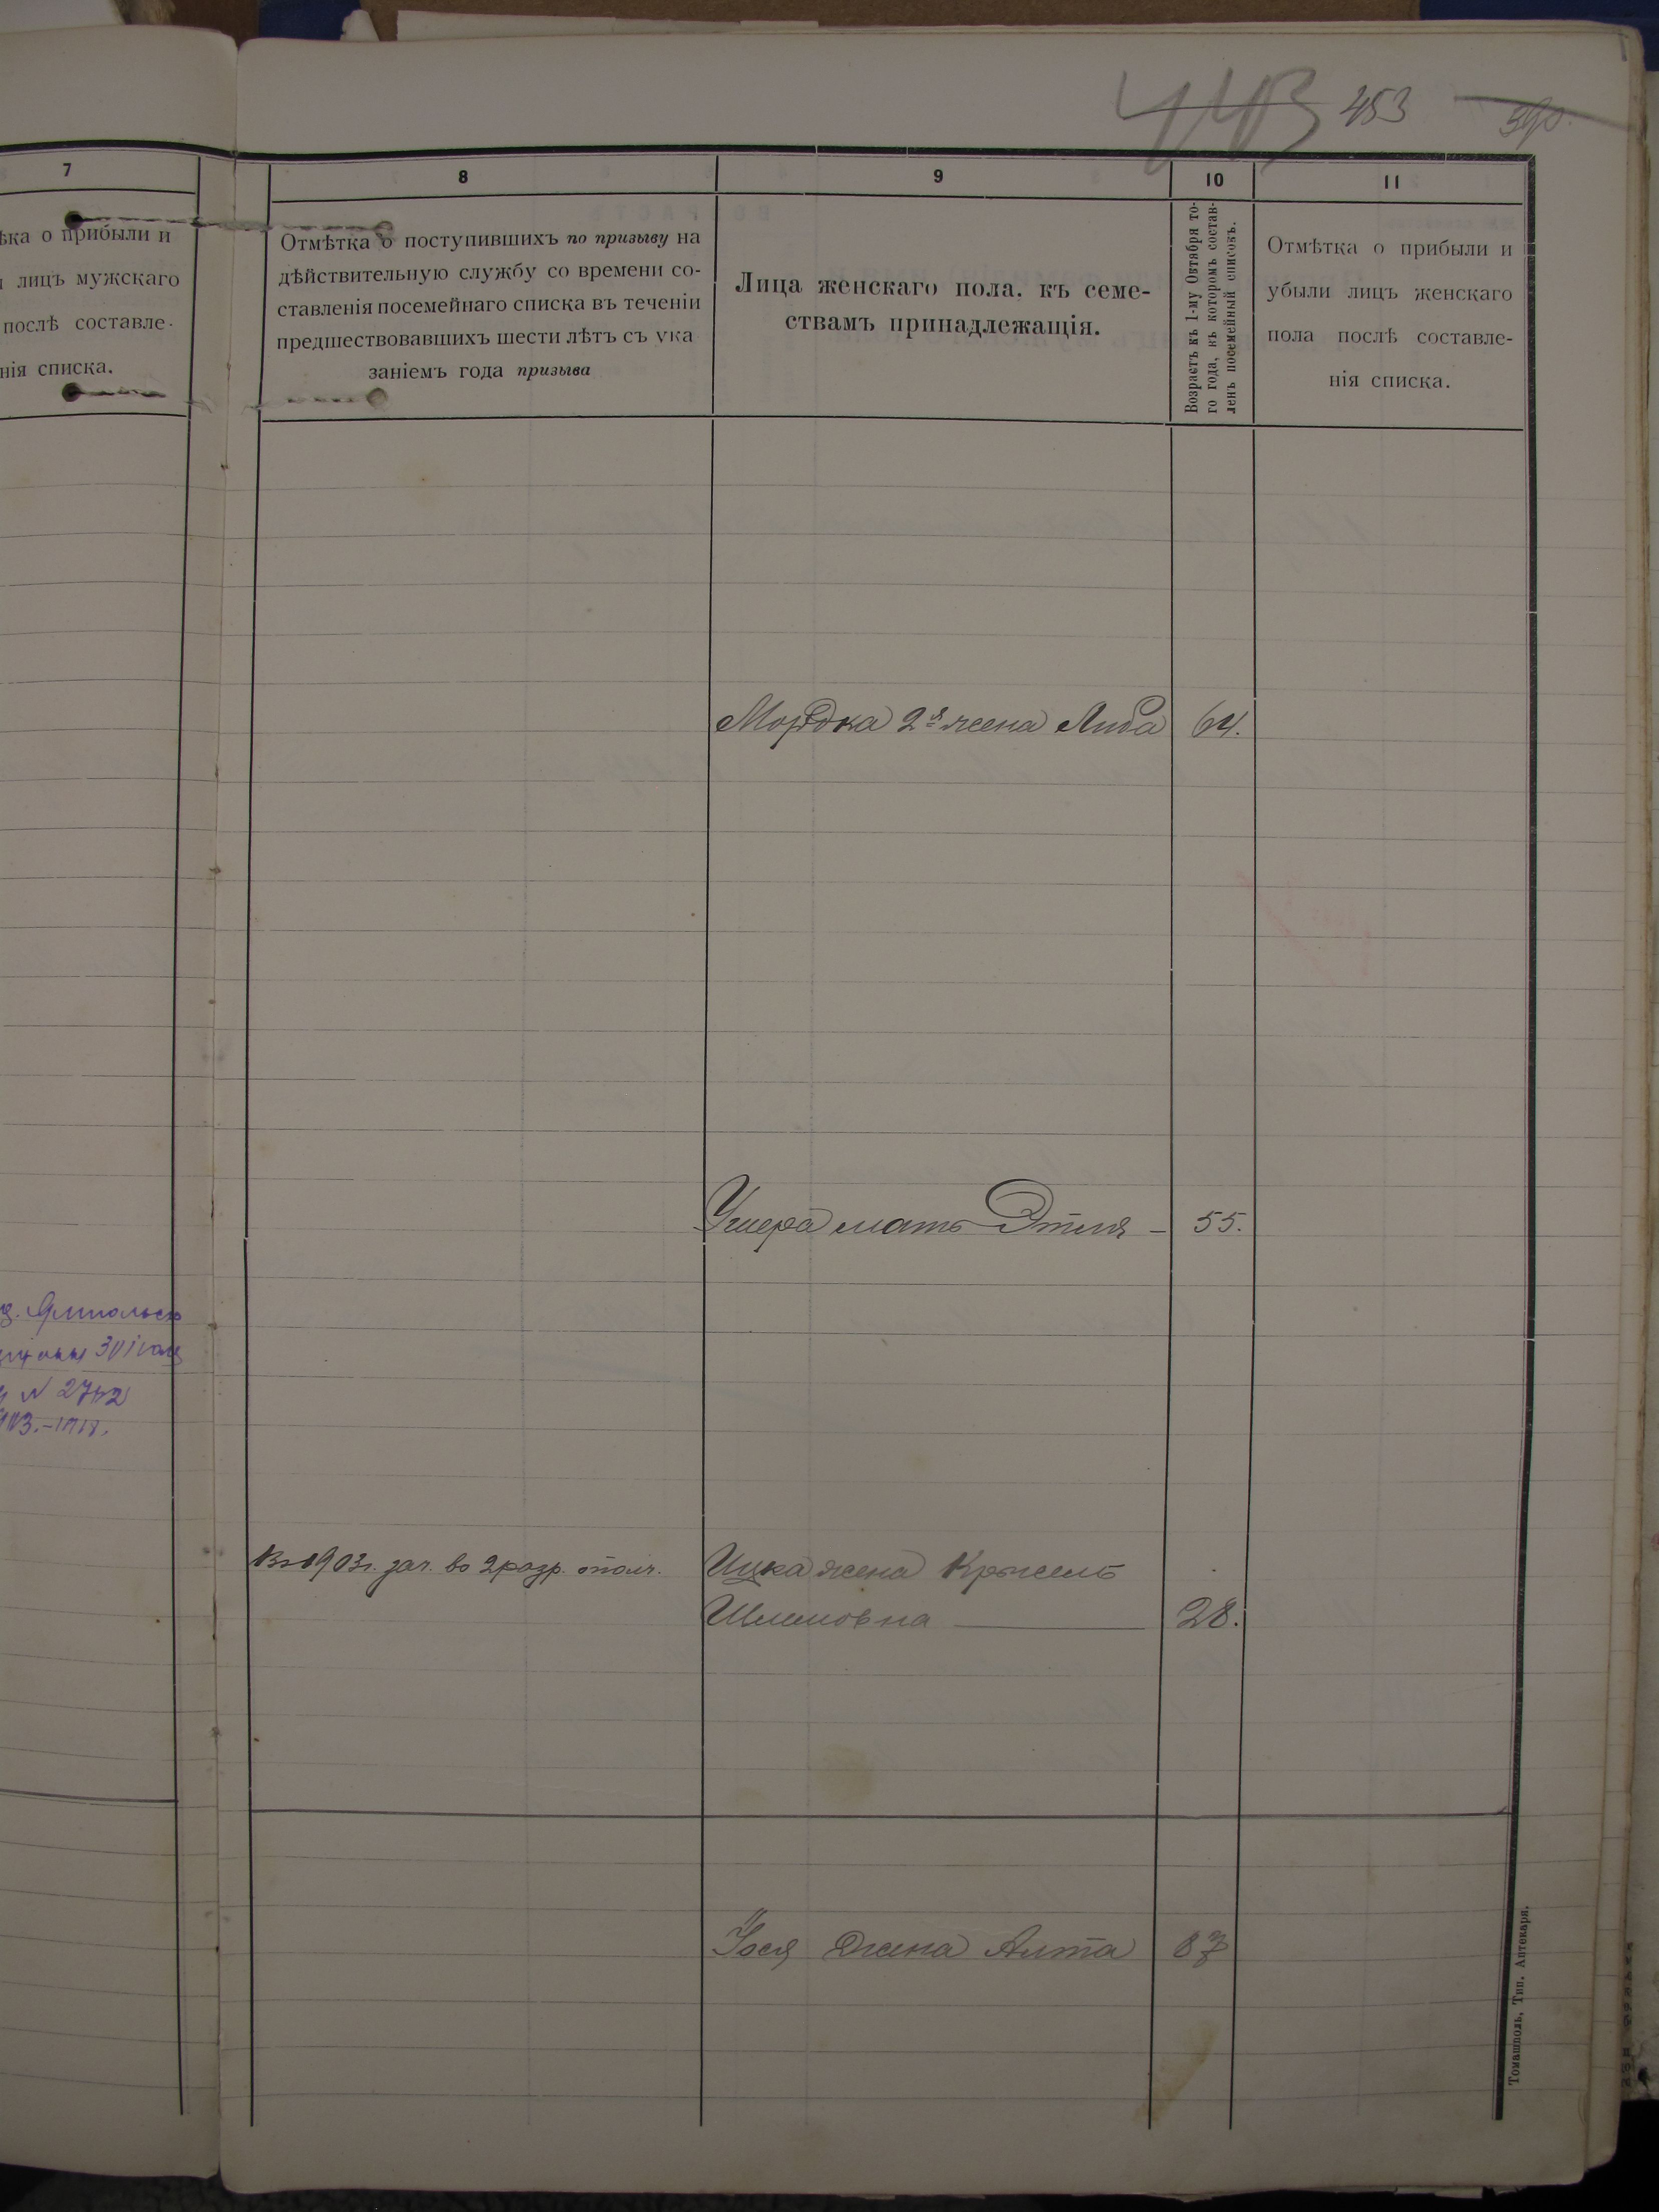 443 453 390.
7
8
9
10
11
ѣка о прибыли и
лицъ мужскаго
послѣ составле-
нія списка.
Отмѣтка о поступившихъ по призыву на
дѣйствительную службу со времени со-
ставленія посемейнаго списка въ теченіи
предшествовавшихъ шести лѣтъ съ ука
заніемъ года призыва
Лица женскаго пола, къ семе-
ствамъ принадлежащія.
Возрастъ къ 1-му Октября то-
го года, къ которомъ состав-
ленъ посемейный списокъ.
Отмѣтка о прибыли и
убыли лицъ женскаго
пола послѣ составле-
нія списка.
Мордка 2я жена Либа 64.
Ушера мать Этля – 55.
N 2742
Въ 1903г. зач. во 2 разр. ополч.
Ицка жена Крысель
Шлиовна 28.
Іося жена Алта 67
Томашполь, Тип. Аптекаря.